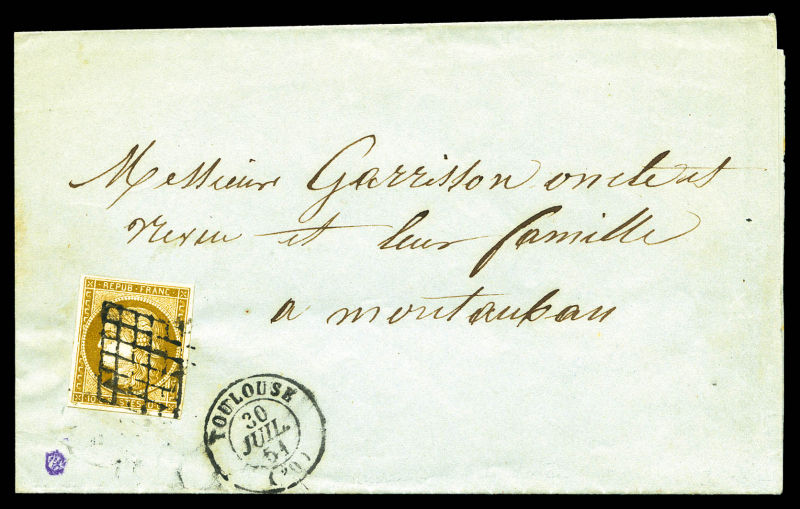 Messieurs Garrisson oncle et
neveu et leur famille
a montauban
REPUB·FRANC·
10
TOULOUSE
30
JUIL.
51